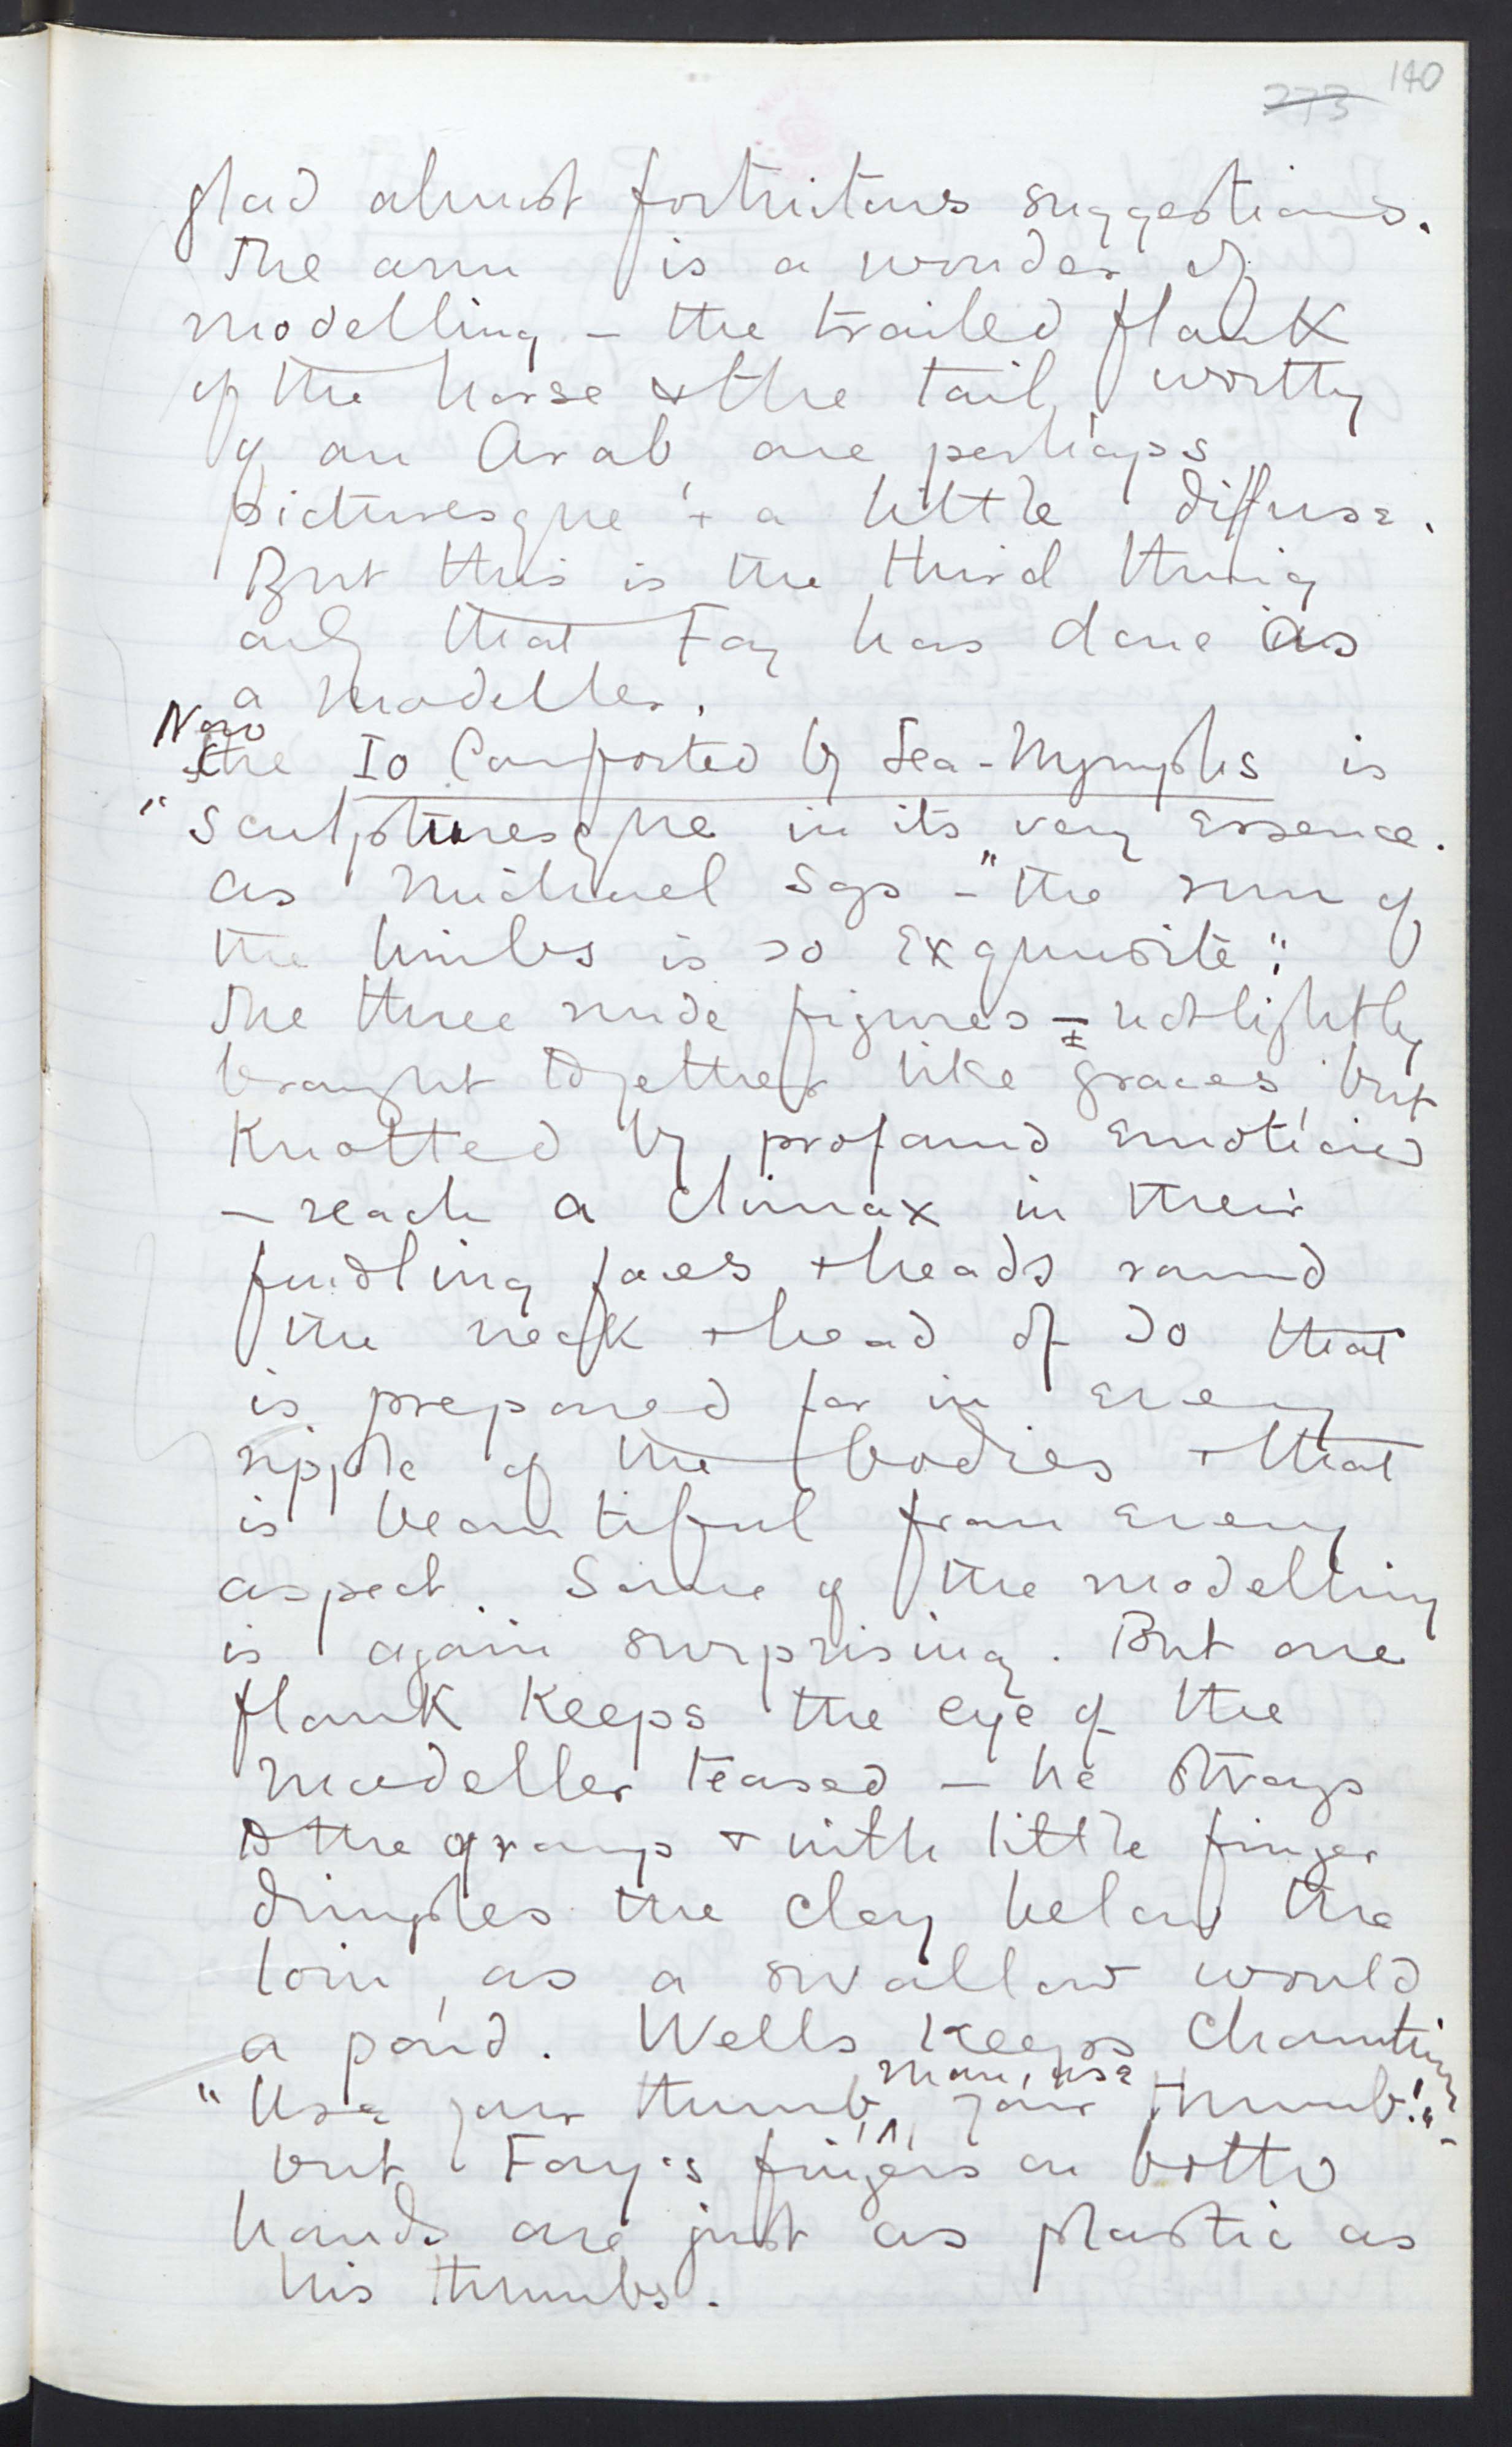 140
273
glad almost fortuitous suggestions.
The arm is a wonder of
modelling – the trailed flank
of the horse & the tail, worthy
of an Arab, are perhaps
picturesque & a little diffuse.
But this is the third thing
only that Fay has done as
a modeller.
Now
the Io Comforted by Sea-Nymphs is
"sculpturesque in its very essence.
As Michael says – "the run of
the limbs is so exquisite".
The three nude figures – not lightly
brought together like graces, but
knotted by profound emotions
– reach a climax in their
fondling faces & heads round
the neck & head of Io that
is prepared for in every
ripple of the bodies & that
is beautiful from every
aspect. Some of the modelling
is again surprising. But one
flank keeps the eye of the
modeller teased – he strays
to the group & with little finger
dimples the clay below the
loin, as a swallow would
a pond. Wells keeps chaunting
"Use your thumb, man, use your thumb!" –
but Fay's fingers on both
hands are just as plastic as
his thumbs.